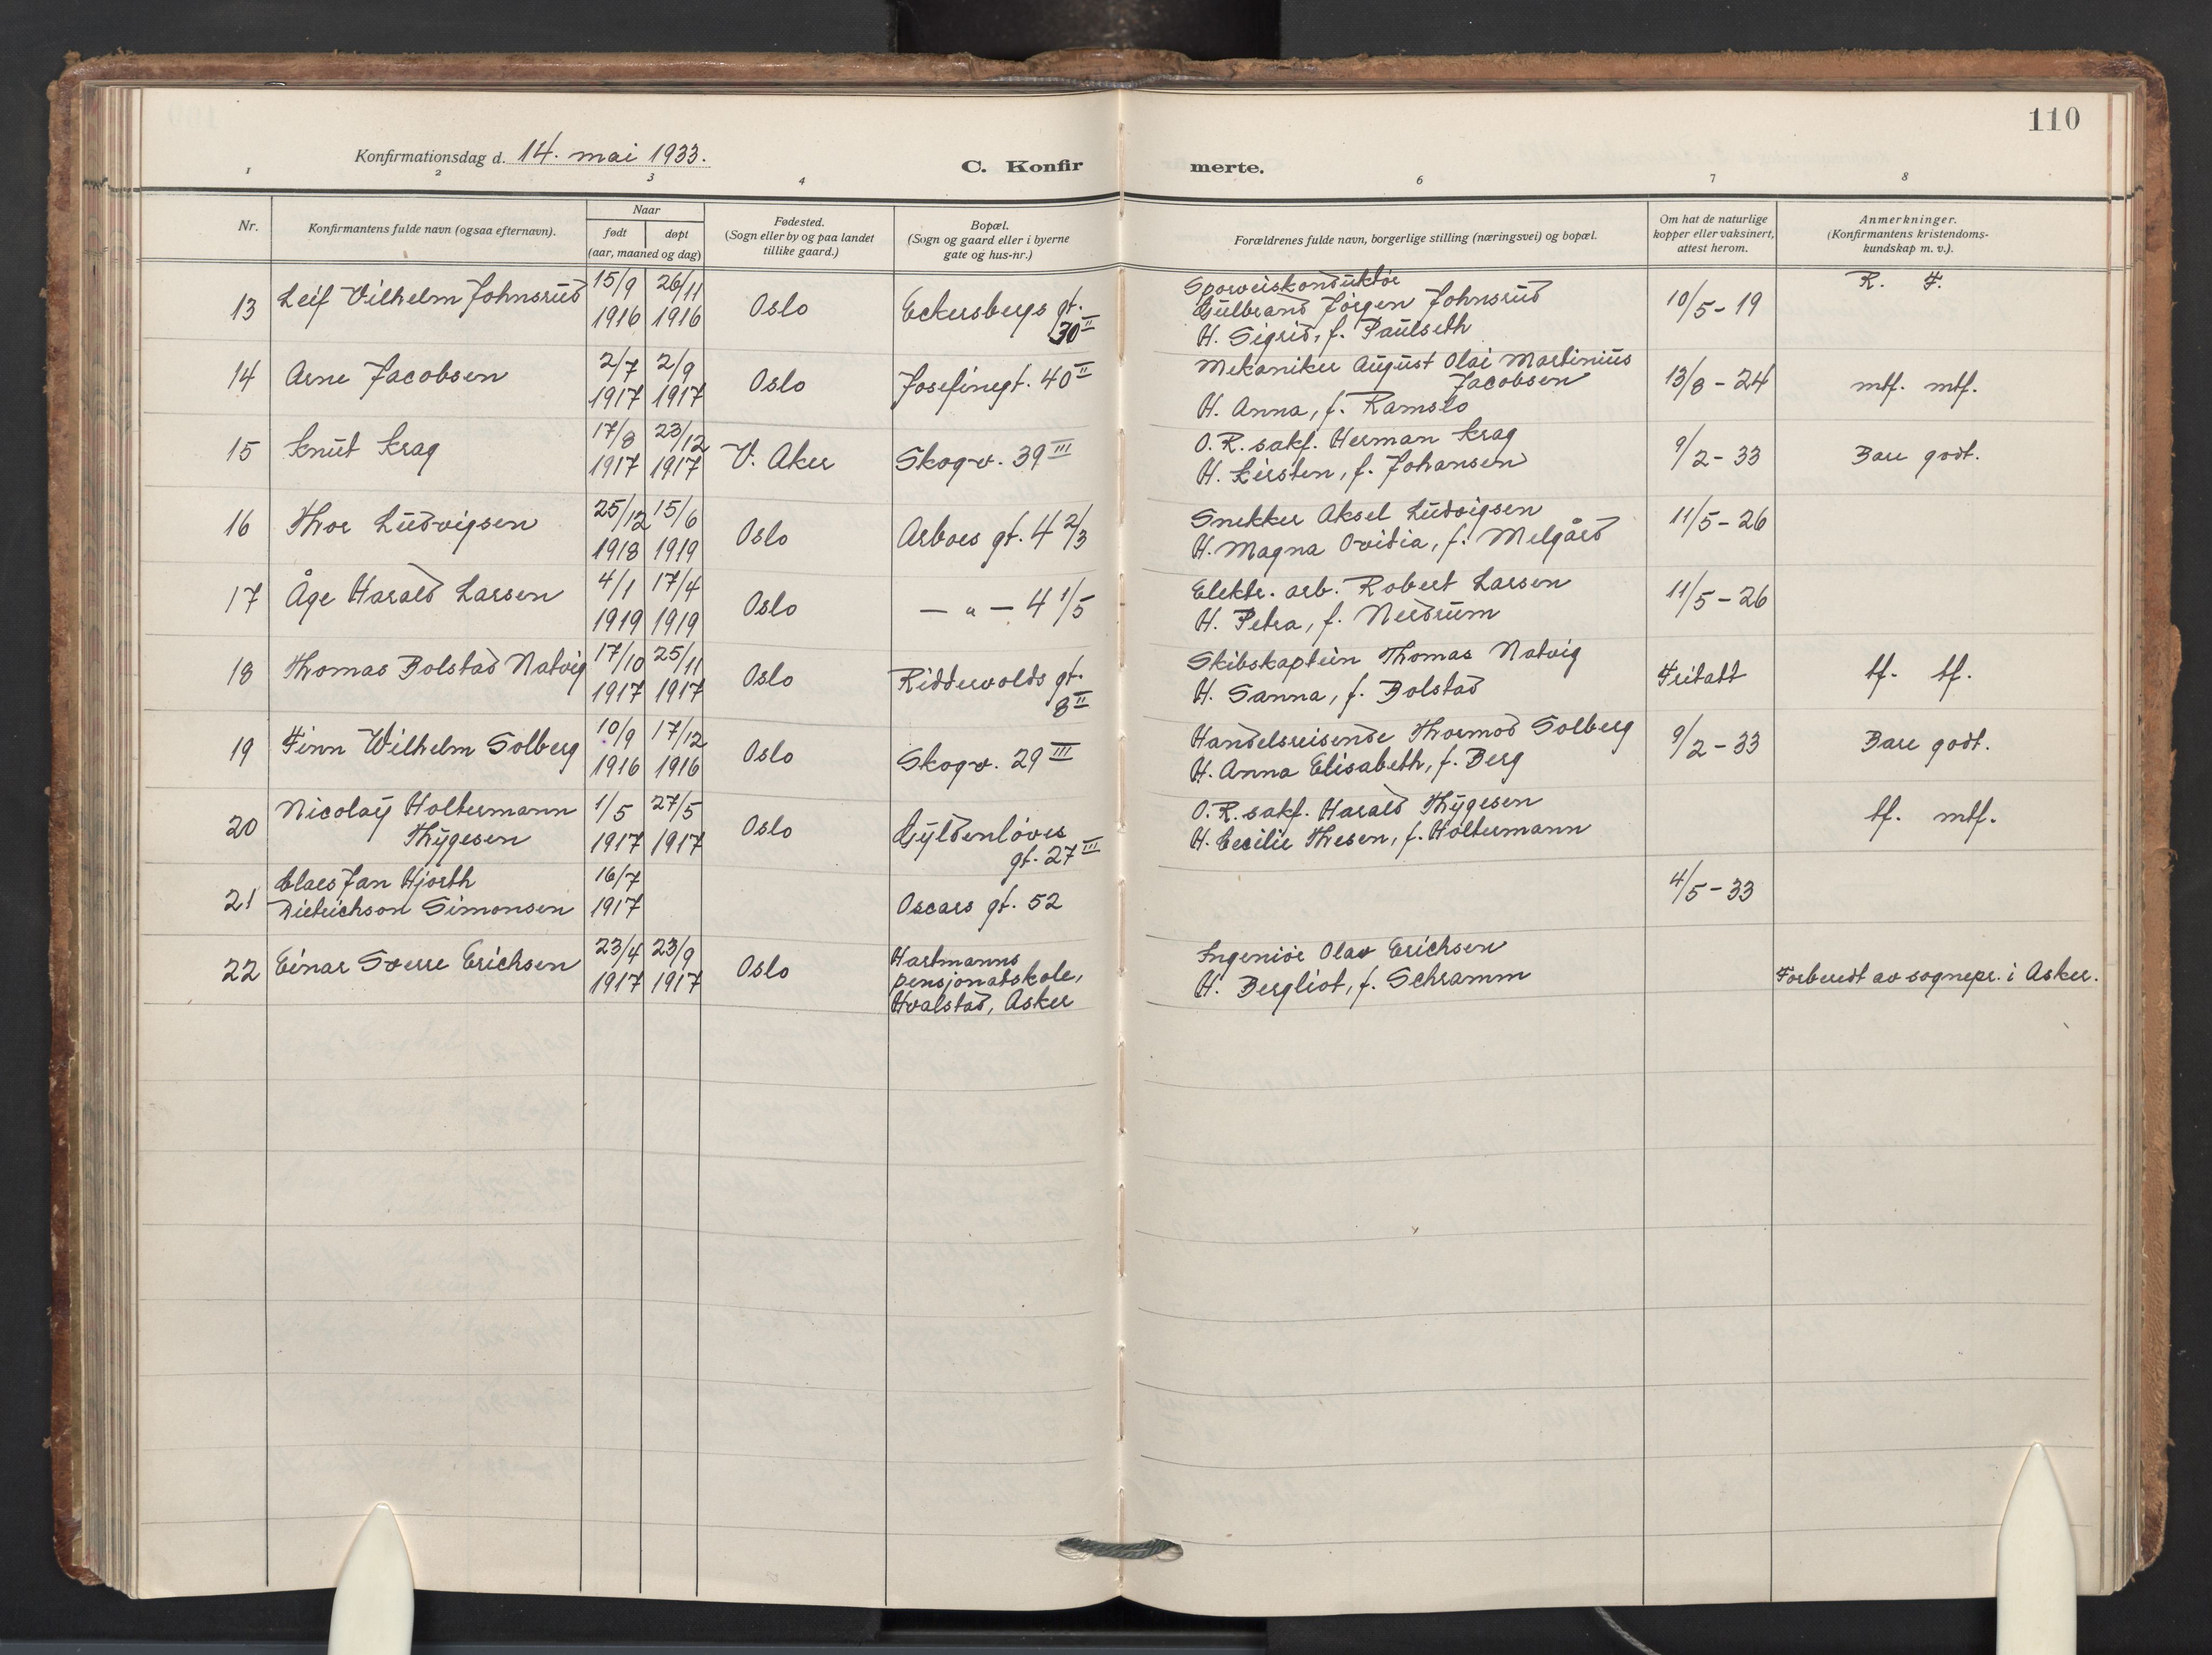 110
Konfirmationsdag d. 14. mai 1933.
C. Konfirmerte.
1 2 3 4 6 7 8
Nr.
Konfirmantens fulde navn (ogsaa efternavn).
Naar
født døpt
(aar, maaned og dag)
Fødested.
(Sogn eller by og paa landet
tillike gaard.)
Bopæl.
(Sogn og gaard eller i byerne
gate og hus-nr.)
Forældrenes fulde navn, borgerlige stilling (næringsvei) og bopæl.
Om hat de naturlige
kopper eller vaksinert,
attest herom.
Anmerkninger.
(Konfirmantens kristendoms-
kundskap m. v.).
13 Leif Vilhelm Johnsrud
15/9 26/11
1916 1916
Oslo
Eckersbergs gt.
30 II
Sporveiskonduktør
Gulbrand Jørgen Johnsrud
H. Sigrid, f. Paulseth
10/5-19
R. F.
14 Arne Jacobsen
2/7 2/9
1917 1917
Oslo
Josefinegt. 40 II
Mekaniker August Olai Martinius
Jacobsen
H. Anna, f. Ramslo
13/8-24
mtf. mtf.
15 Knut Krag
17/8 23/12
1917 1917
V. Aker
Skogv. 39 III
O.R.sakf. Herman Krag
H. Kirsten, f. Johansen
9/2-33
Bare godt.
16 Thor Ludvigsen
25/12 15/6
1918 1919
Oslo
Arboes gt. 4 2/3
Snekker Aksel Ludvigsen
H. Magna Ovidia, f. Melgård
11/5-26
17 Åge Harald Larsen
4/1 17/4
1919 1919
Oslo
— " — 4 1/5
Elektr. arb. Robert Larsen
H. Petra, f. Nerdrum
11/5-26
18 Thomas Bolstad Natvig
17/10 25/11
1917 1917
Oslo
Riddervolds gt.
8 II
Skibskaptein Thomas Natvig
H. Sanna, f. Bolstad
Fritatt
tf. tf.
19 Finn Wilhelm Solberg
10/9 17/12
1916 1916
Oslo
Skogv. 29 III
Handelsreisende Thormod Solberg
H. Anna Elisabeth, f. Berg
9/2-33
Bare godt.
20 Nicolay Holtermann
Thygesen
1/5 27/5
1917 1917
Oslo
Gyldenløves
gt. 27 III
O.R.sakf. Harald Thygesen
H. Cecilie Thesen, f. Holtermann
tf. mtf.
21 Claes Jan Hjorth
Dietrichson Simonsen
16/7
1917
Oscars gt. 52
4/5-33
22 Einar Sverre Erichsen
23/4 23/9
1917 1917
Oslo
Hartmanns
pensjonatskole,
Hvalstad, Asker
Ingeniør Olav Erichsen
H. Bergliot, f. Schramm
Forberedt av sognepr. i Asker.